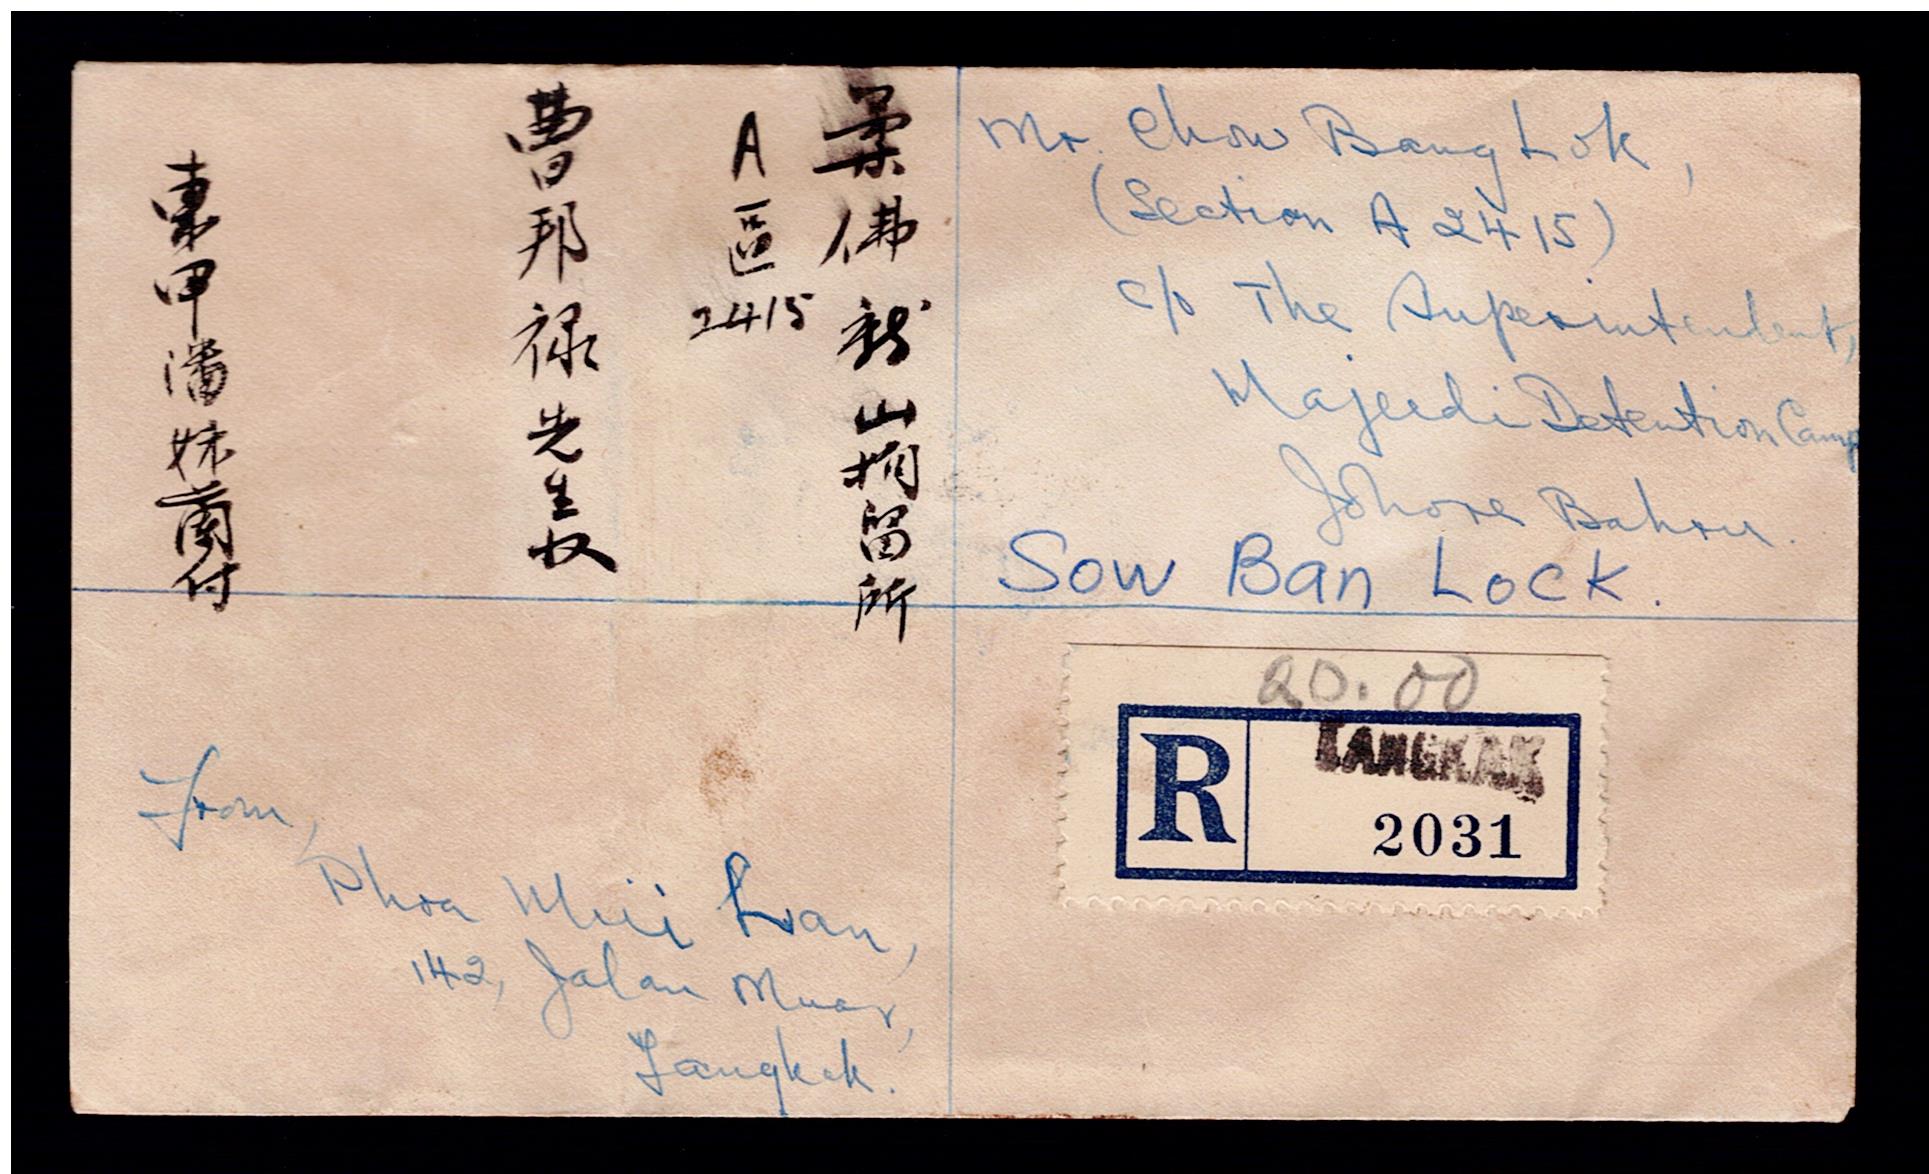 柔佛新山拘留所
A區
2415
曹邦禄先生收
東甲潘妹蘭付
Mr. Chow Bang Lok,
(Section A 2415)
c/o The Superintendent,
Majeedi Detention Camp
Johore Bahru.
Sow Ban Lock.
20.00
R
TANGKAK
2031
From,
Phoa Mui Lan,
142, Jalan Muar,
Tangkak.